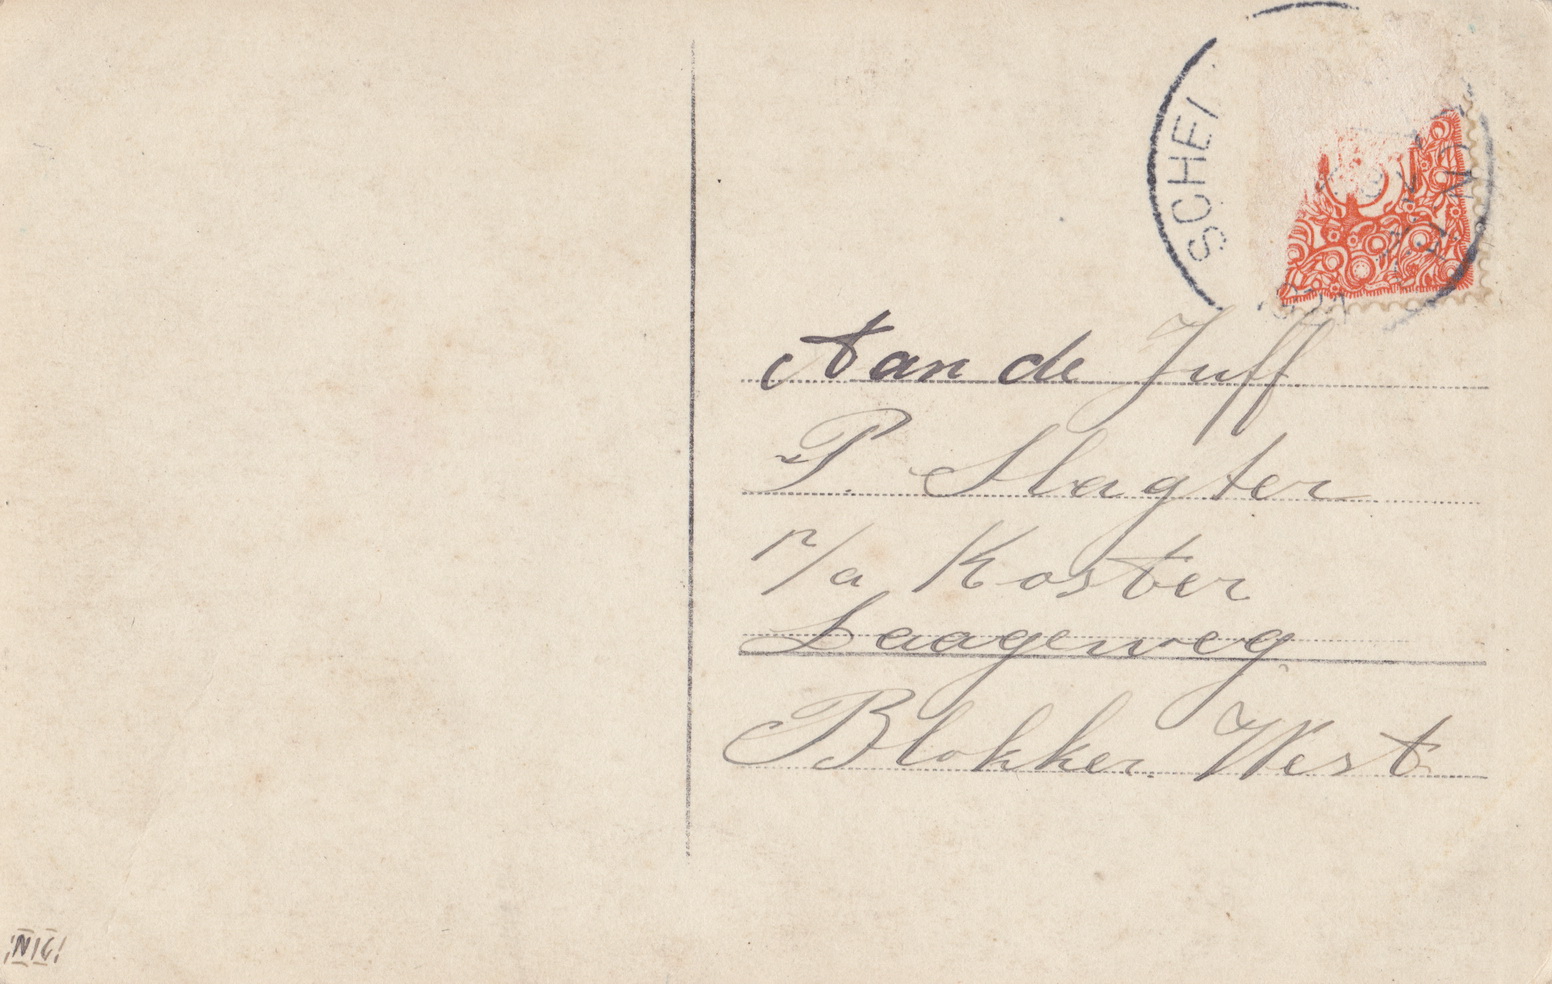 SCHE
Aan de Juff
P. Slagter
p/a Koster
Laageweg
Blokker West
NIG